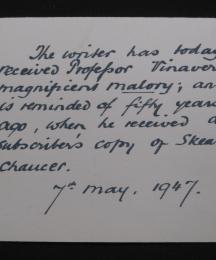 The writer has today
received Professor Vinaver
magnificent malory; an
is reminded of fifty years
ago, when he received a
subscriber's copy of Skea
Chaucer.
7th may. 1947.